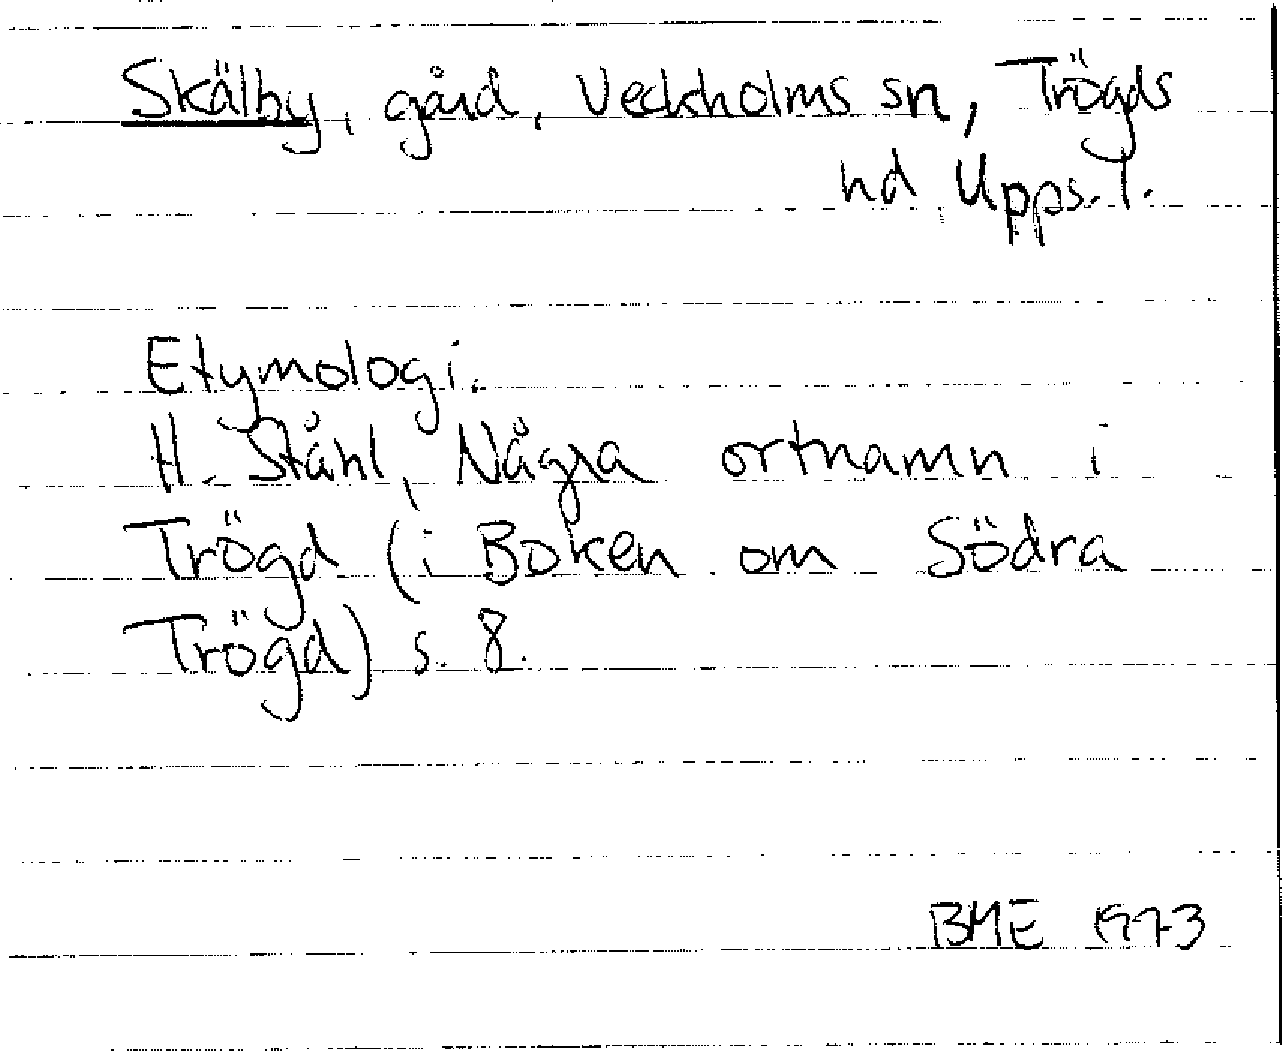 Skälby, gård, Veckholms sn, Trögds
hd, Upps. l.
Etymologi.
H. Ståhl, Några ortnamn i
Trögd (i Boken om Södra
Trögd) s. 8.
BME 1973